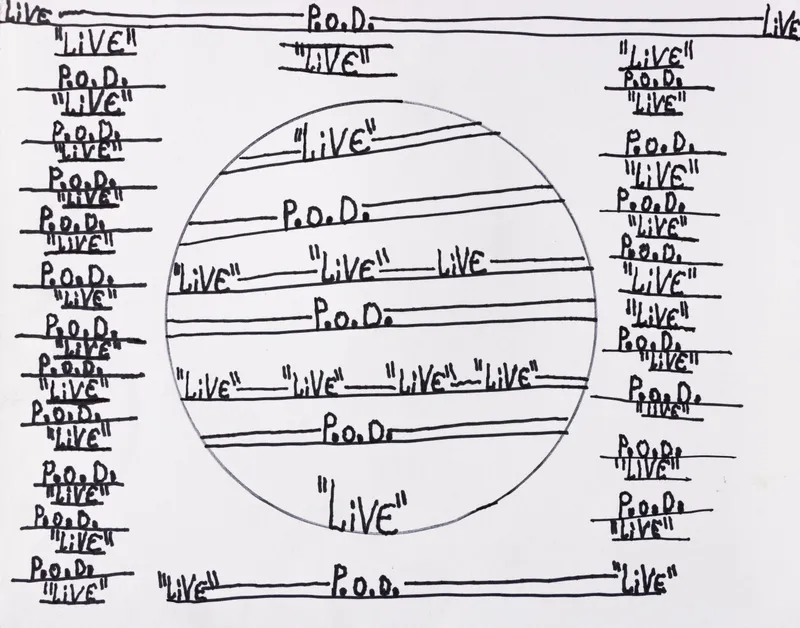 LiVE P.O.D. LiVE
"LiVE"
P.O.D.
"LiVE"
P.O.D.
"LiVE"
P.O.D.
"LiVE"
P.O.D.
"LiVE"
P.O.D.
"LiVE"
P.O.D.
"LiVE"
P.O.D.
"LiVE"
P.O.D.
"LiVE"
P.O.D.
"LiVE"
P.O.D.
"LiVE"
P.O.D.
"LiVE"
"LiVE"
"LiVE"
P.O.D.
"LiVE" "LiVE" LiVE
P.O.D.
"LiVE" "LiVE" "LiVE" "LiVE"
P.O.D.
"LiVE"
"LiVE"
P.O.D.
"LiVE"
P.O.D.
"LiVE"
P.O.D.
"LiVE"
P.O.D.
"LiVE"
"LiVE"
P.O.D.
"LiVE"
P.O.D.
"LiVE"
P.O.D.
"LiVE"
P.O.D.
"LiVE"
"LiVE" P.O.D. "LiVE"